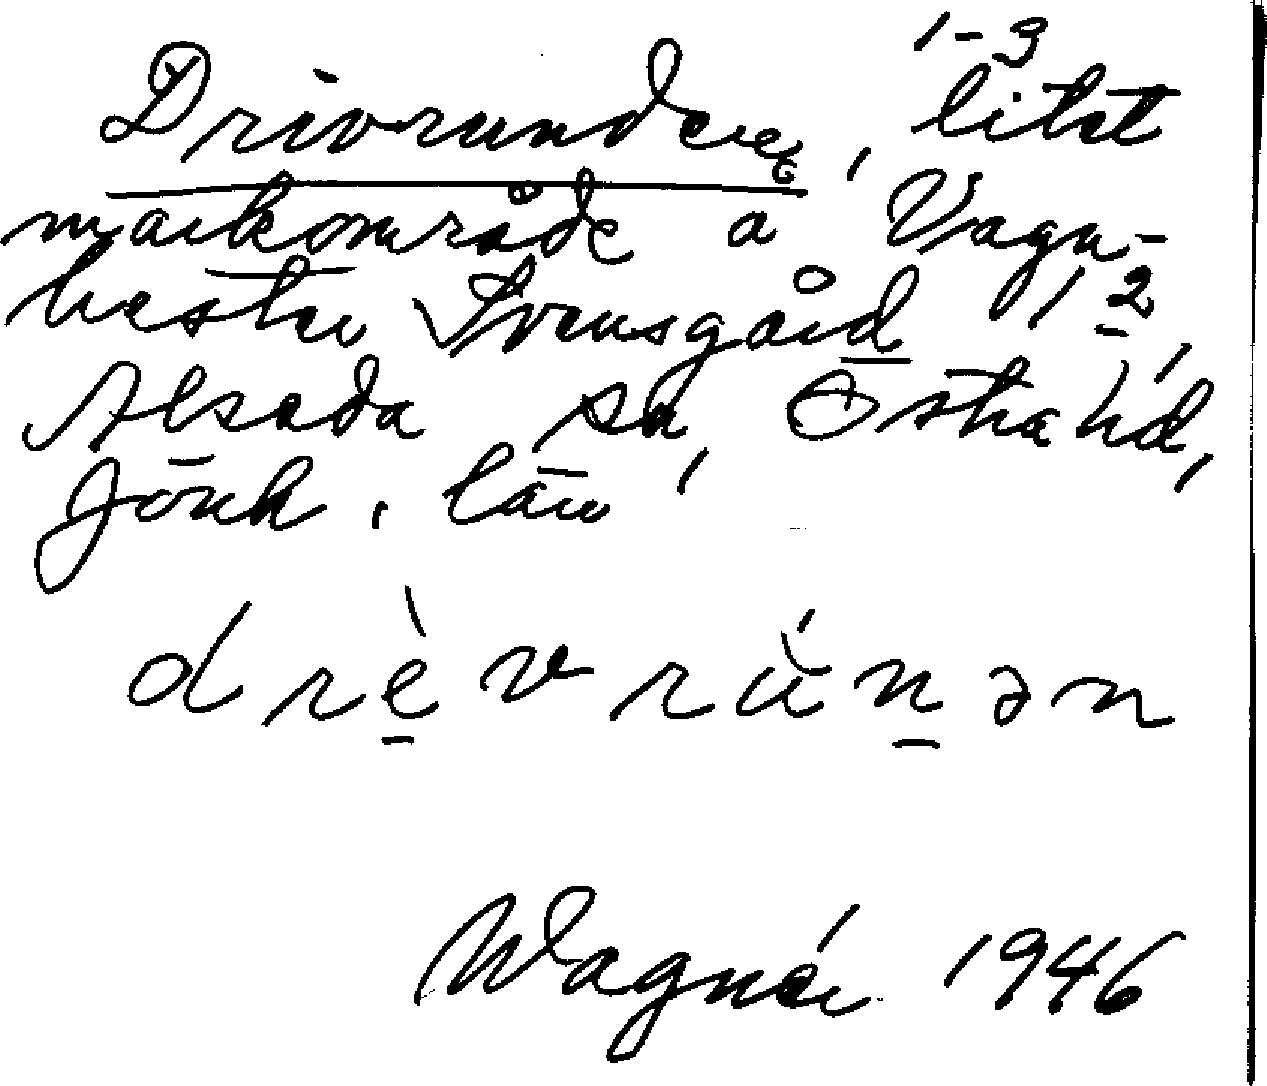 1-3
Drivrunden, litet
markområde a Vagn-
hester Svensgård 1 2,
Alseda sn, Östra hd,
Jönk. län
drè̱vrùṉən
Wagnér 1946